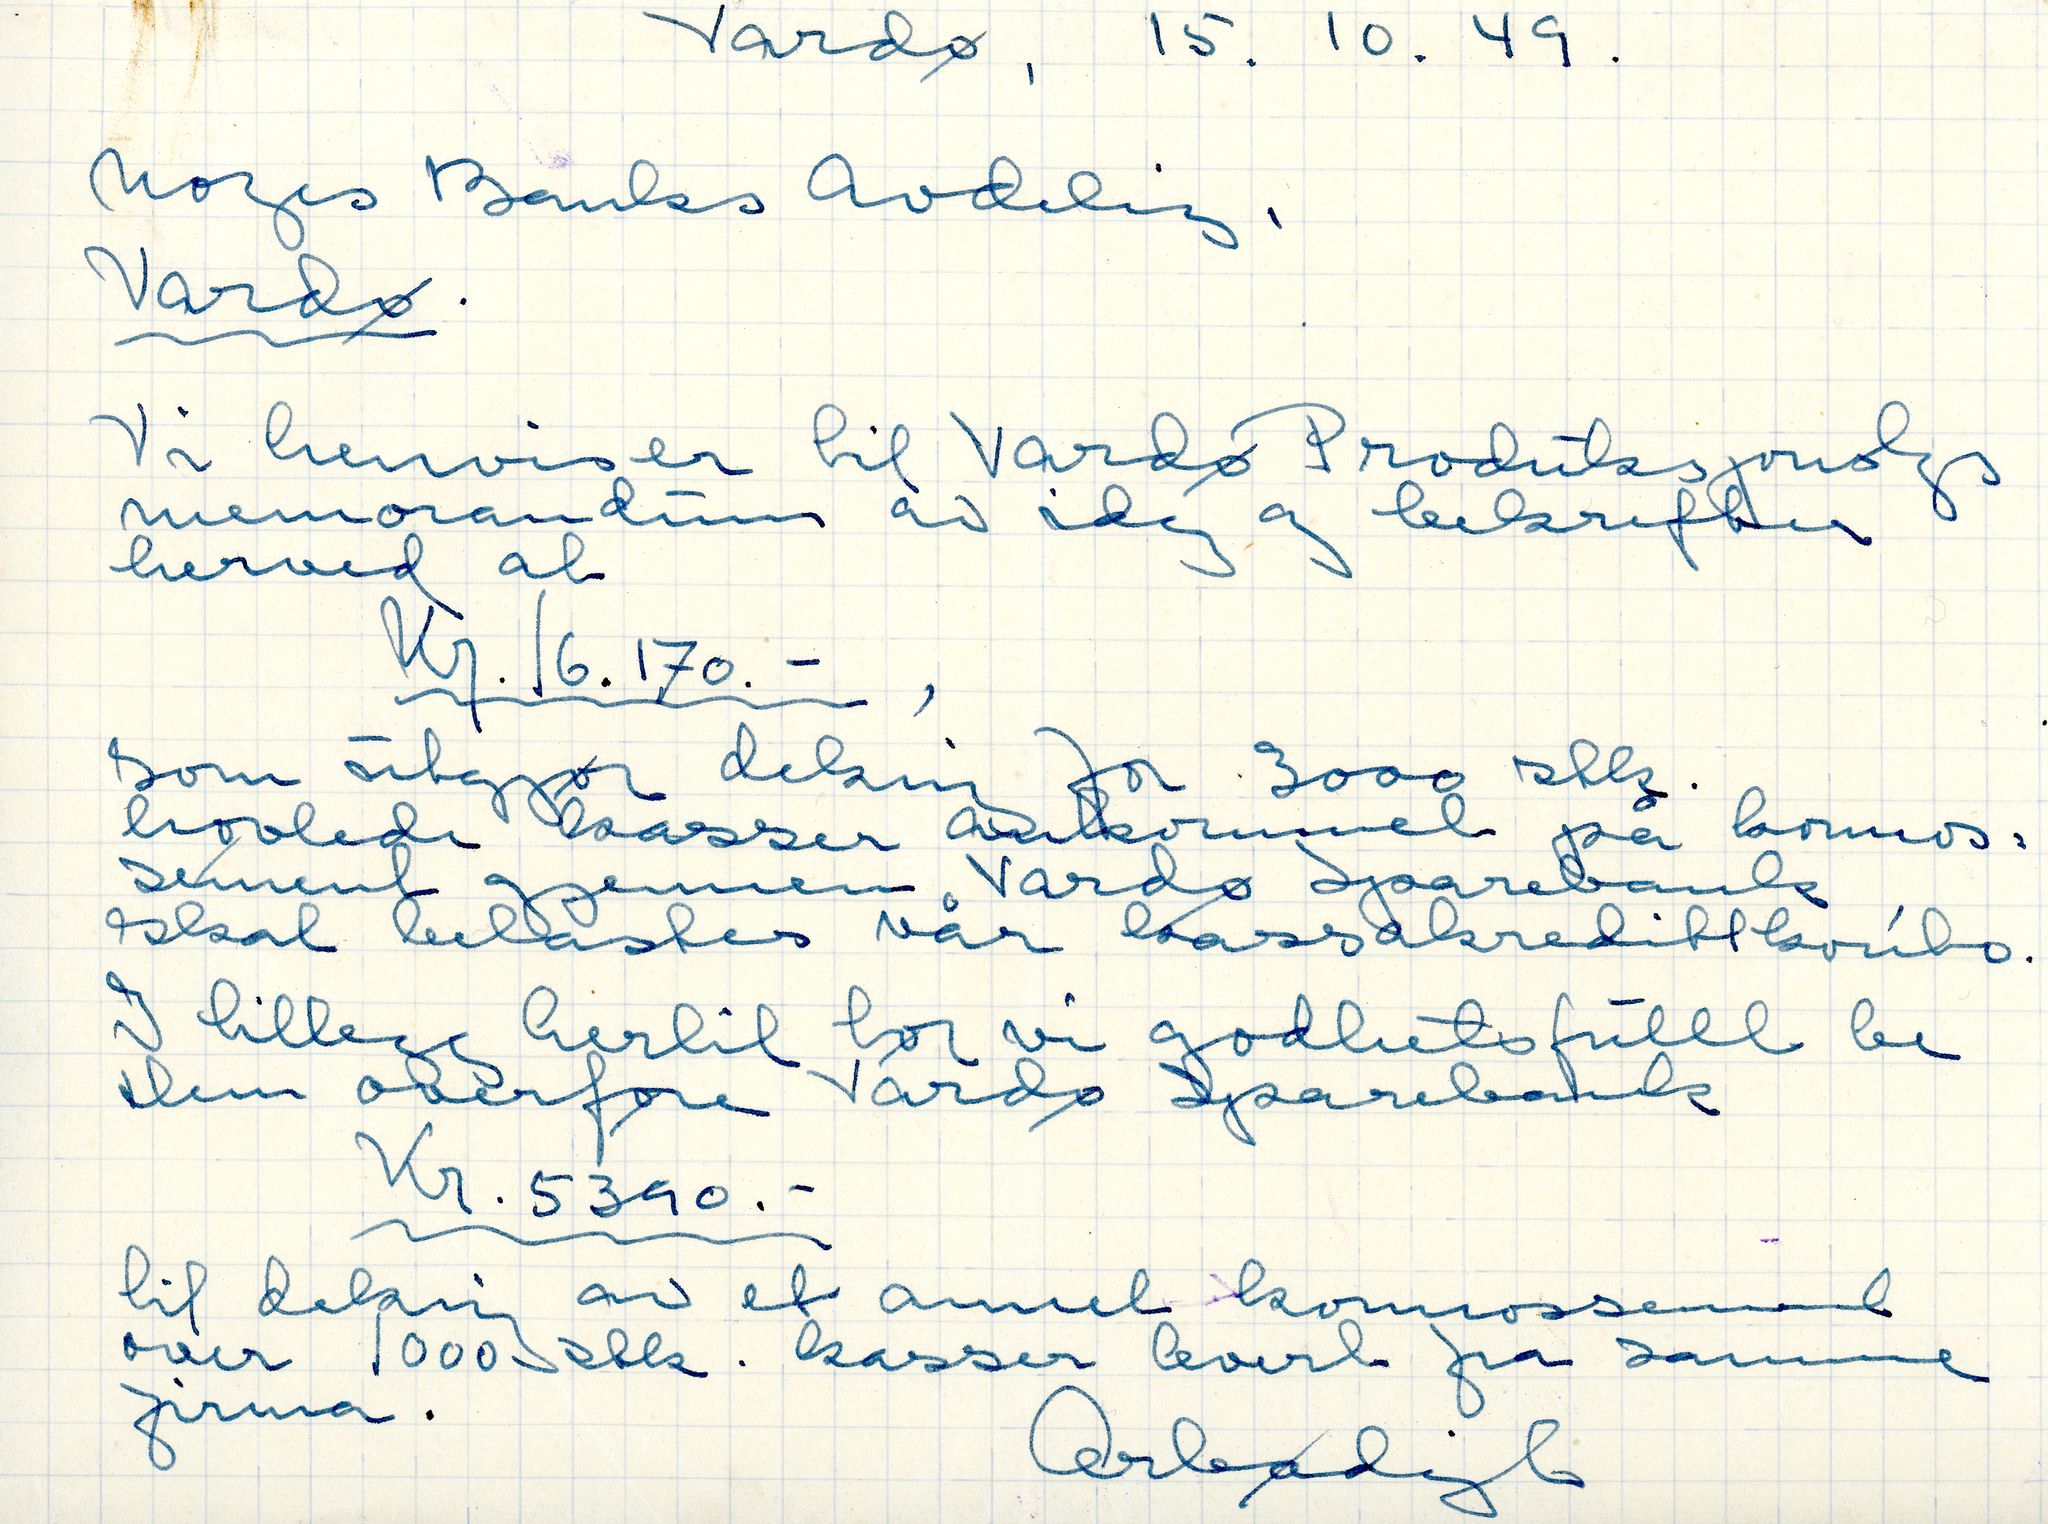 Vardø, 15. 10. 49.
Norges Banks Avdeling,
Vardø.
Vi henviser til Vardø Produksjonslgs
memorandum av idag og bekrefter
herved at
Kr. 16.170.-,
som utgjør dekning for 3000 stk.
høvlede kasser ankommet på konnos-
sement gjennem Vardø Sparebank
skal belastes vår kassakredittkonto.
I tillegg hertil tør vi godhetsfullt be
Dem overføre Vardø Sparebank
Kr. 5390.-
til dekning av et annet konnossement
over 1000 stk. kasser levert fra samme
firma.
Ærbødigst